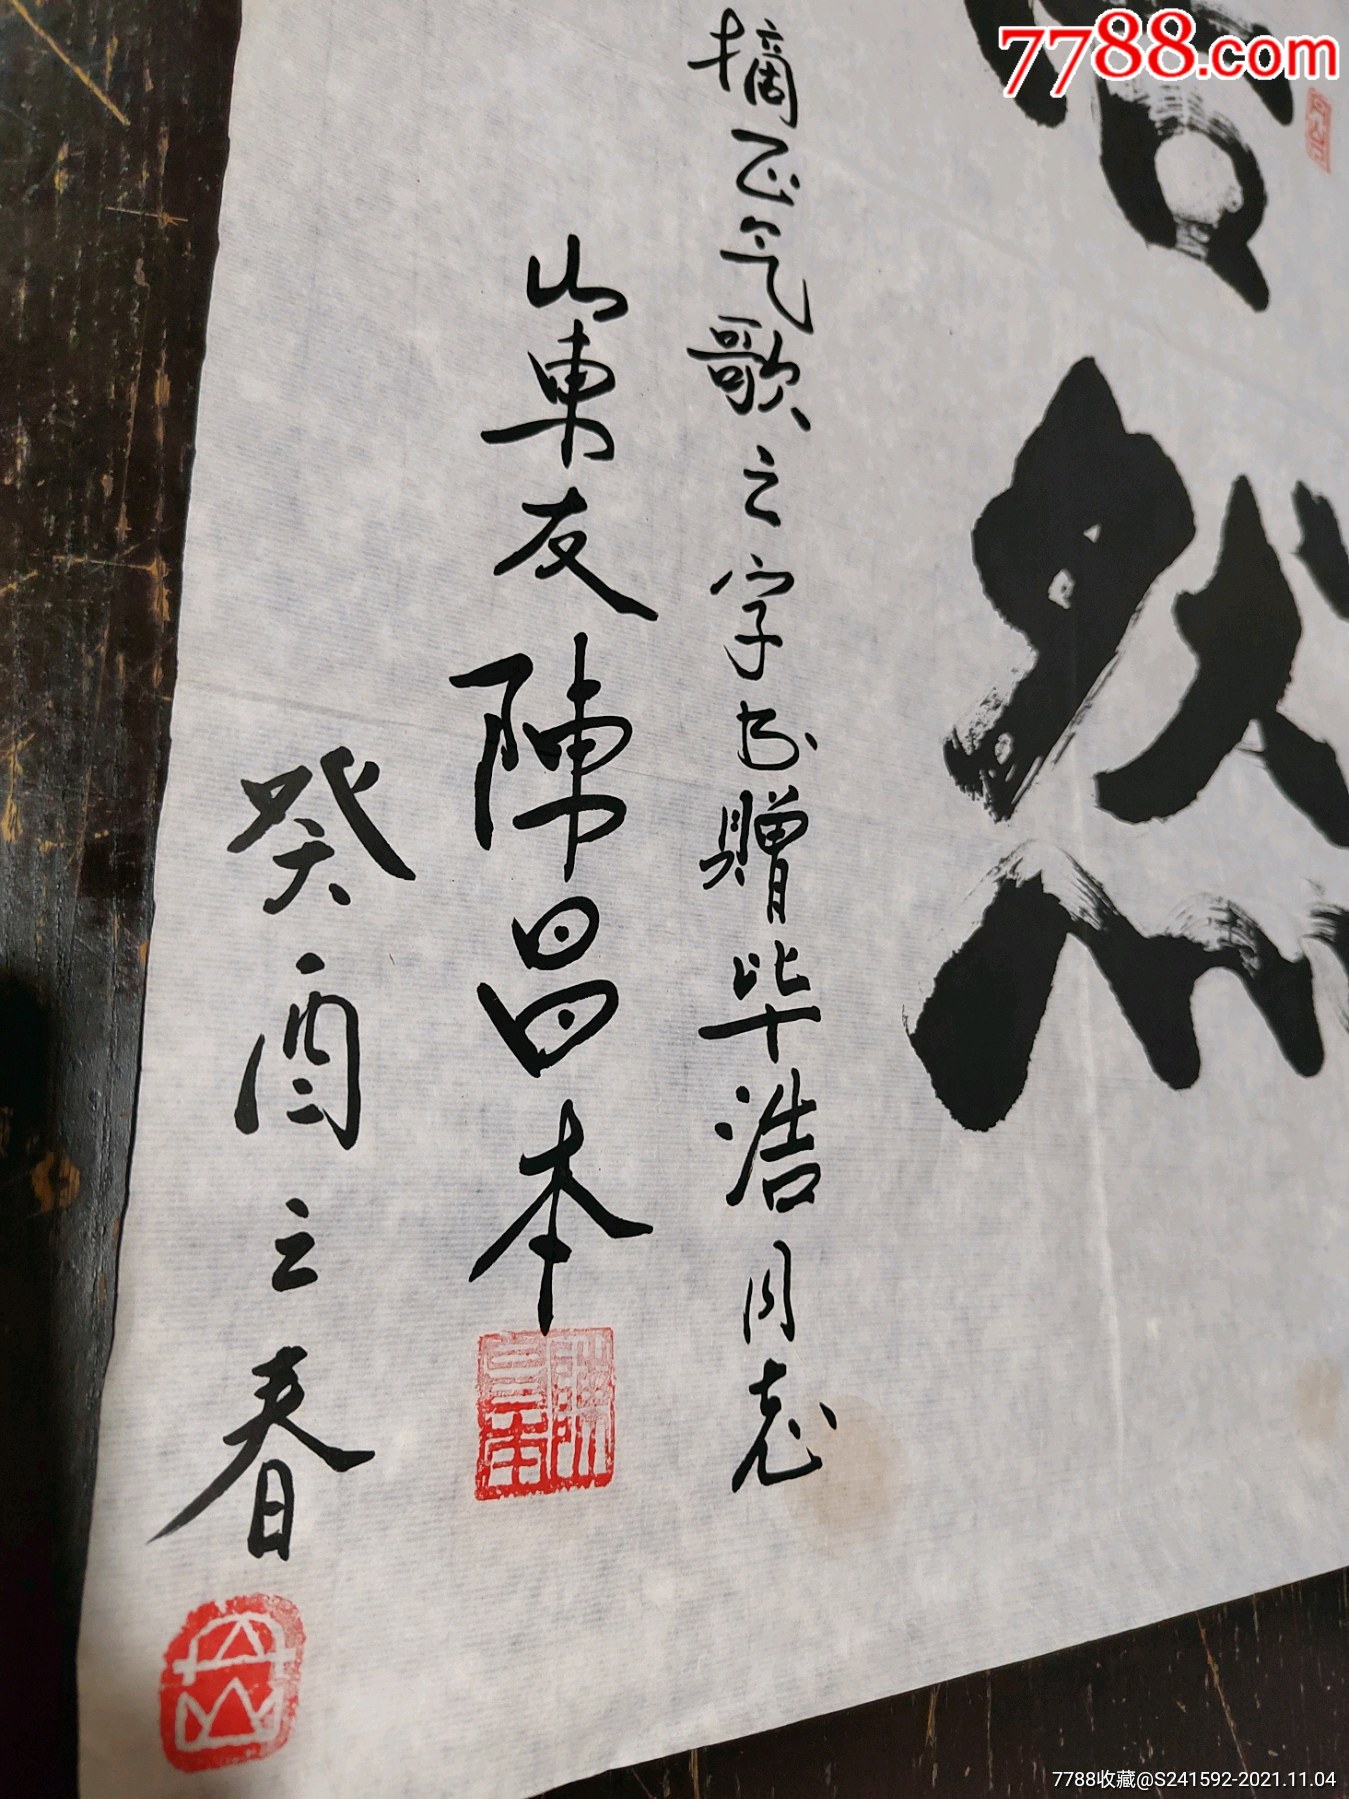 7788.com
然
摘正气歌之字书赠毕浩同志
山東友陳昌本
癸酉之春
7788收藏@S241592-2021.11.04